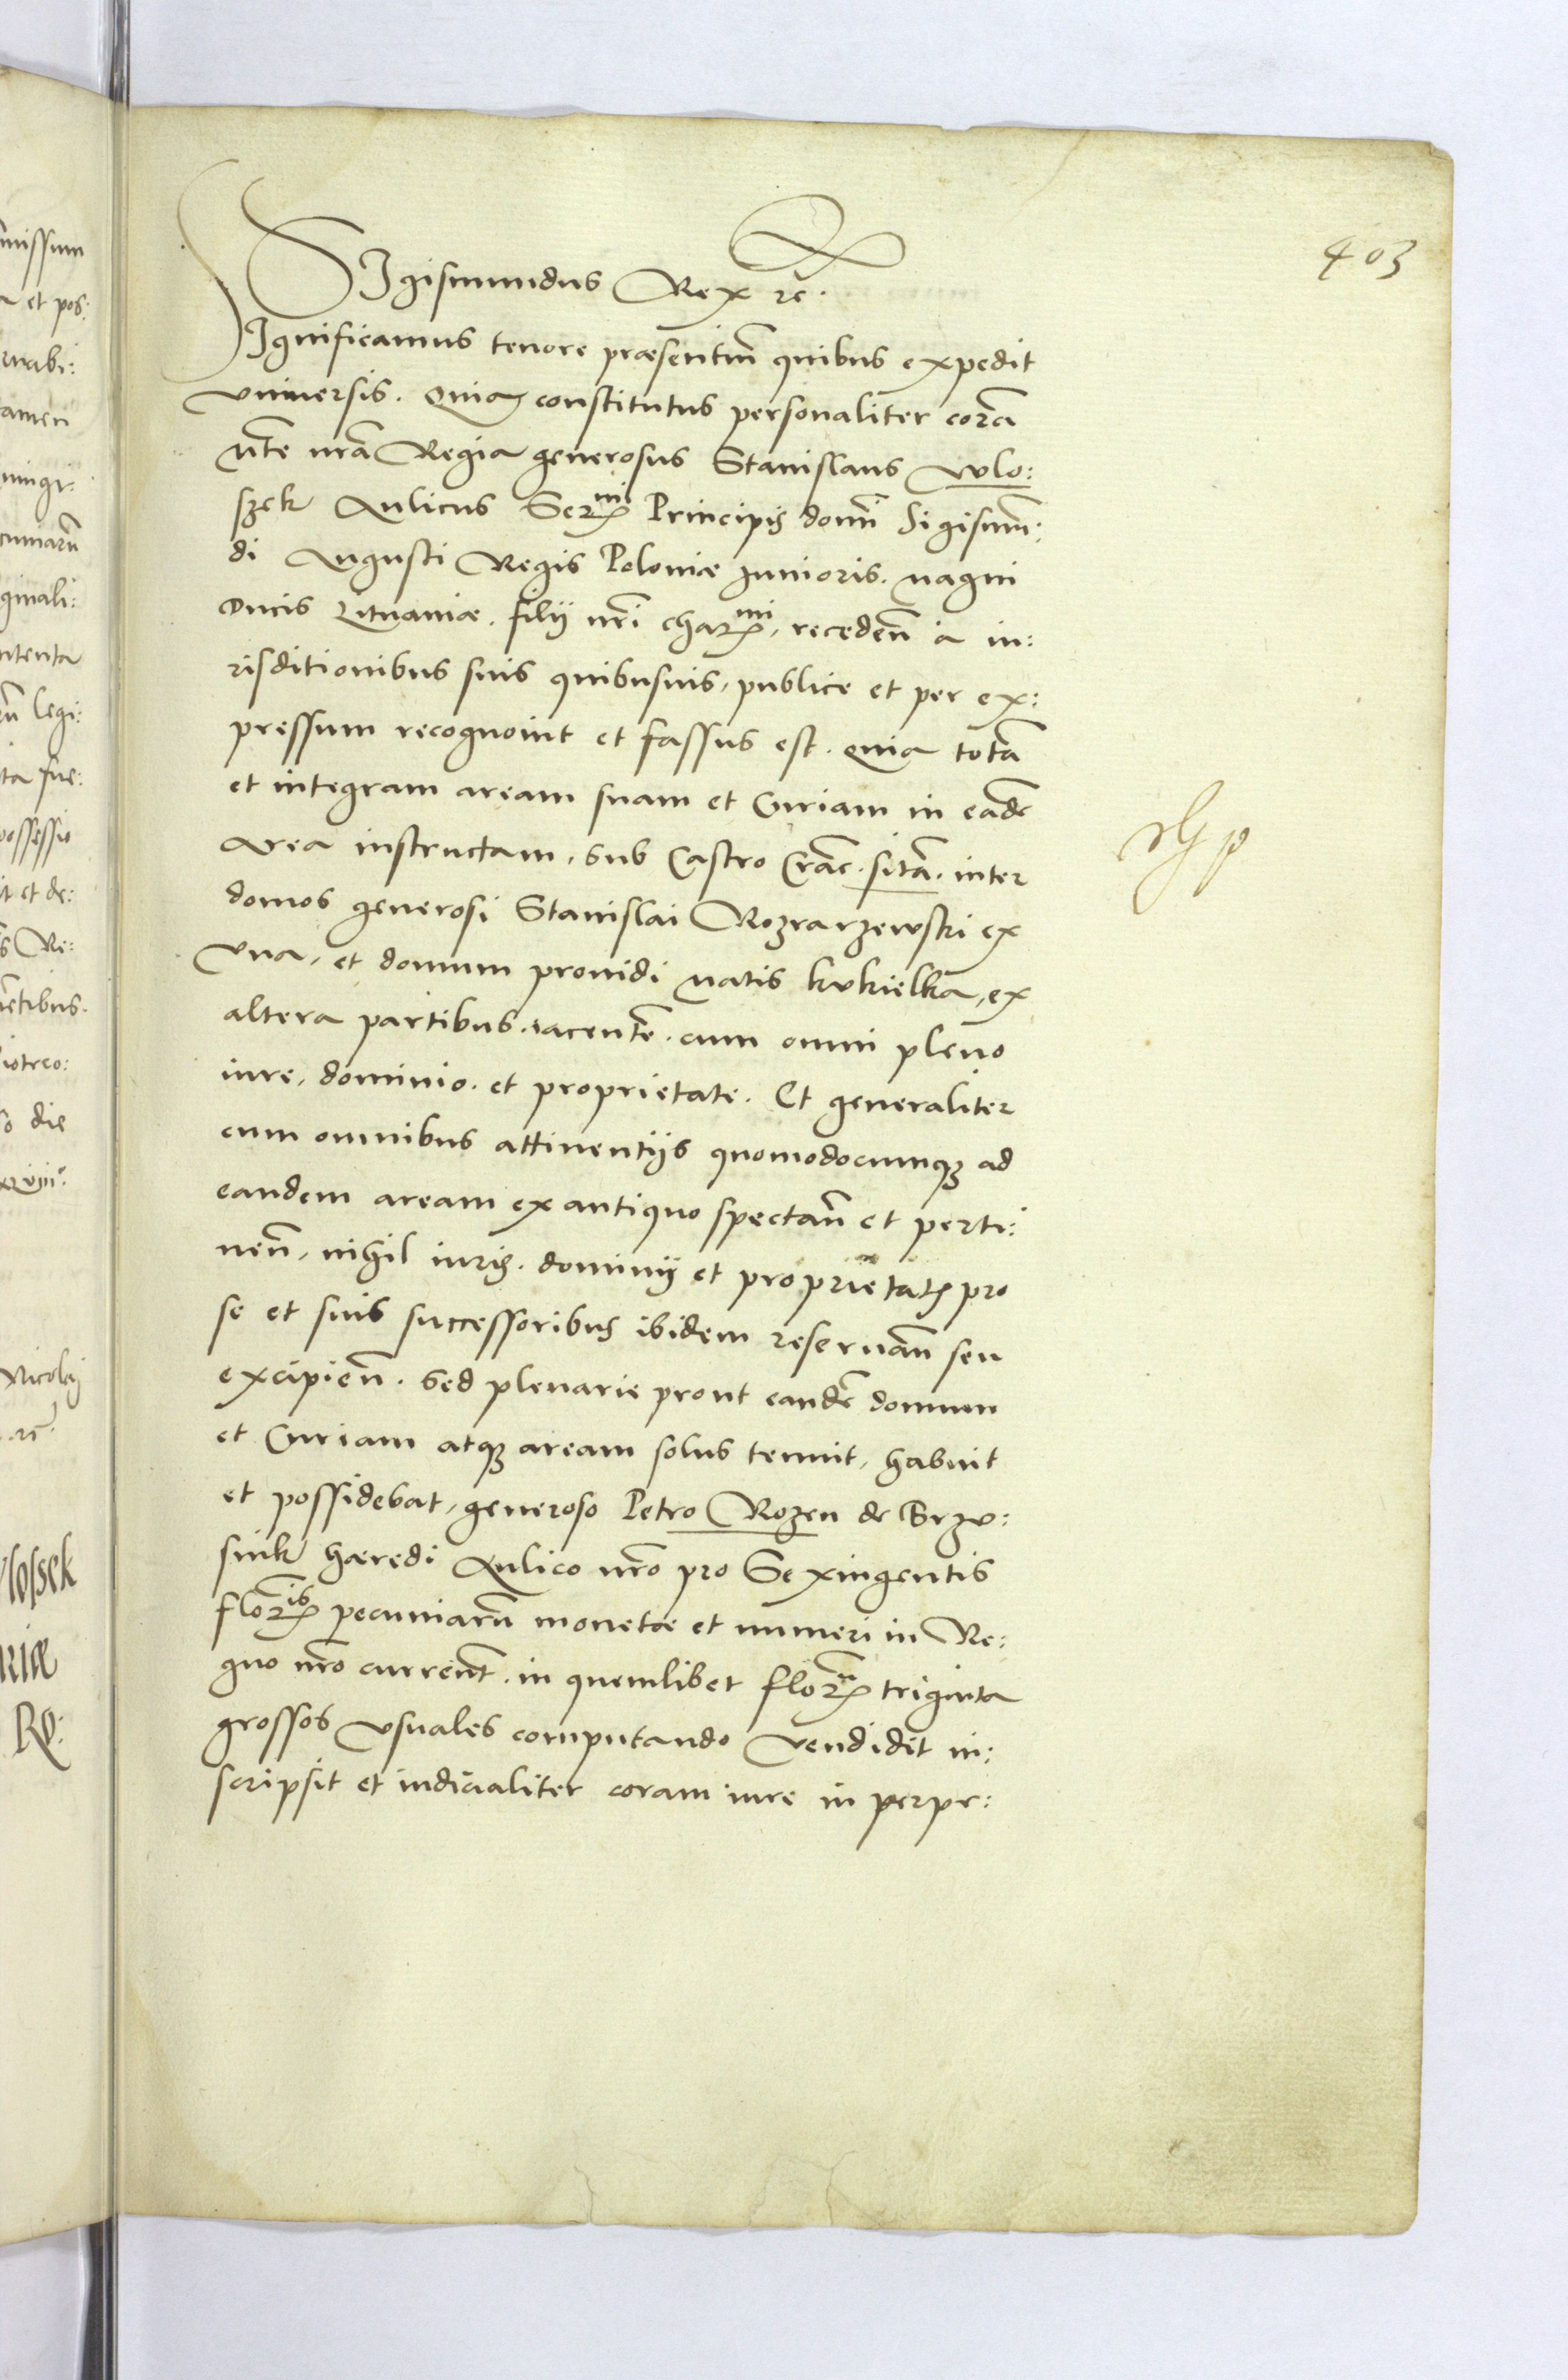 403
SIgismundus Rex etc.
SIgnificamus tenore præsentium quibus expedit
vniuersis. Quia constitutus personaliter corā
mte nrā Regia generosus Stanislaus Wlo:
szek Aulicus Sermi Principis domi Sigismun:
di Augusti Regis Poloniæ Iunioris. magni
Ducis Lituaniæ. filij nri charmi, recedeñ a iu:
risditionibus suis quibusuis, publice et per ex:
pressum recognouit et fassus est. quia totā
et integram aream suam et Curiam in eadē
Area instructam, sub Castro Crac. sitā. inter
domos generosi Stanislai Rozrarzewski ex
vna, et domum prouidi Matis kukielka, ex
altera partibus. iacentē. cum omni pleno
iure, dominio. et proprietate. Et generaliter
cum omnibus attinentijs quomodocunqꝫ ad
eandem aream ex antiquo spectañ et perti:
neñ, nihil iuris. dominij et proprietatis pro
se et suis successoribus ibidem reseruañ seu
excipieñ. Sed plenarie prout eandē domum
et Curiam atqꝫ aream solus tenuit, habuit
et possidebat, generoso Petro Rozen de Brze:
sink hæredi Aulico nrō pro Sexingentis
floris pecuniarū monetæ et numeri in Re:
gno nrō currenť. in quemlibet florm triginta
grossos vsuales computando vendidit in:
scripsit et iudicialiter coram iure in perpe: